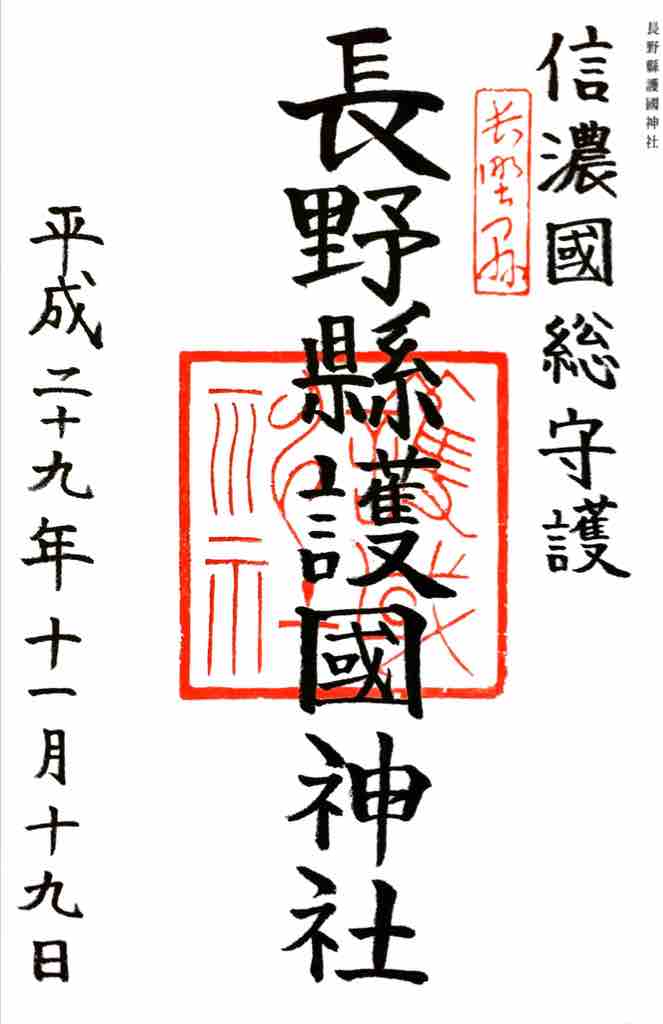 長野縣護國神社
信濃國総守護
長野縣
長野縣護國神社
平成二十九年十一月十九日